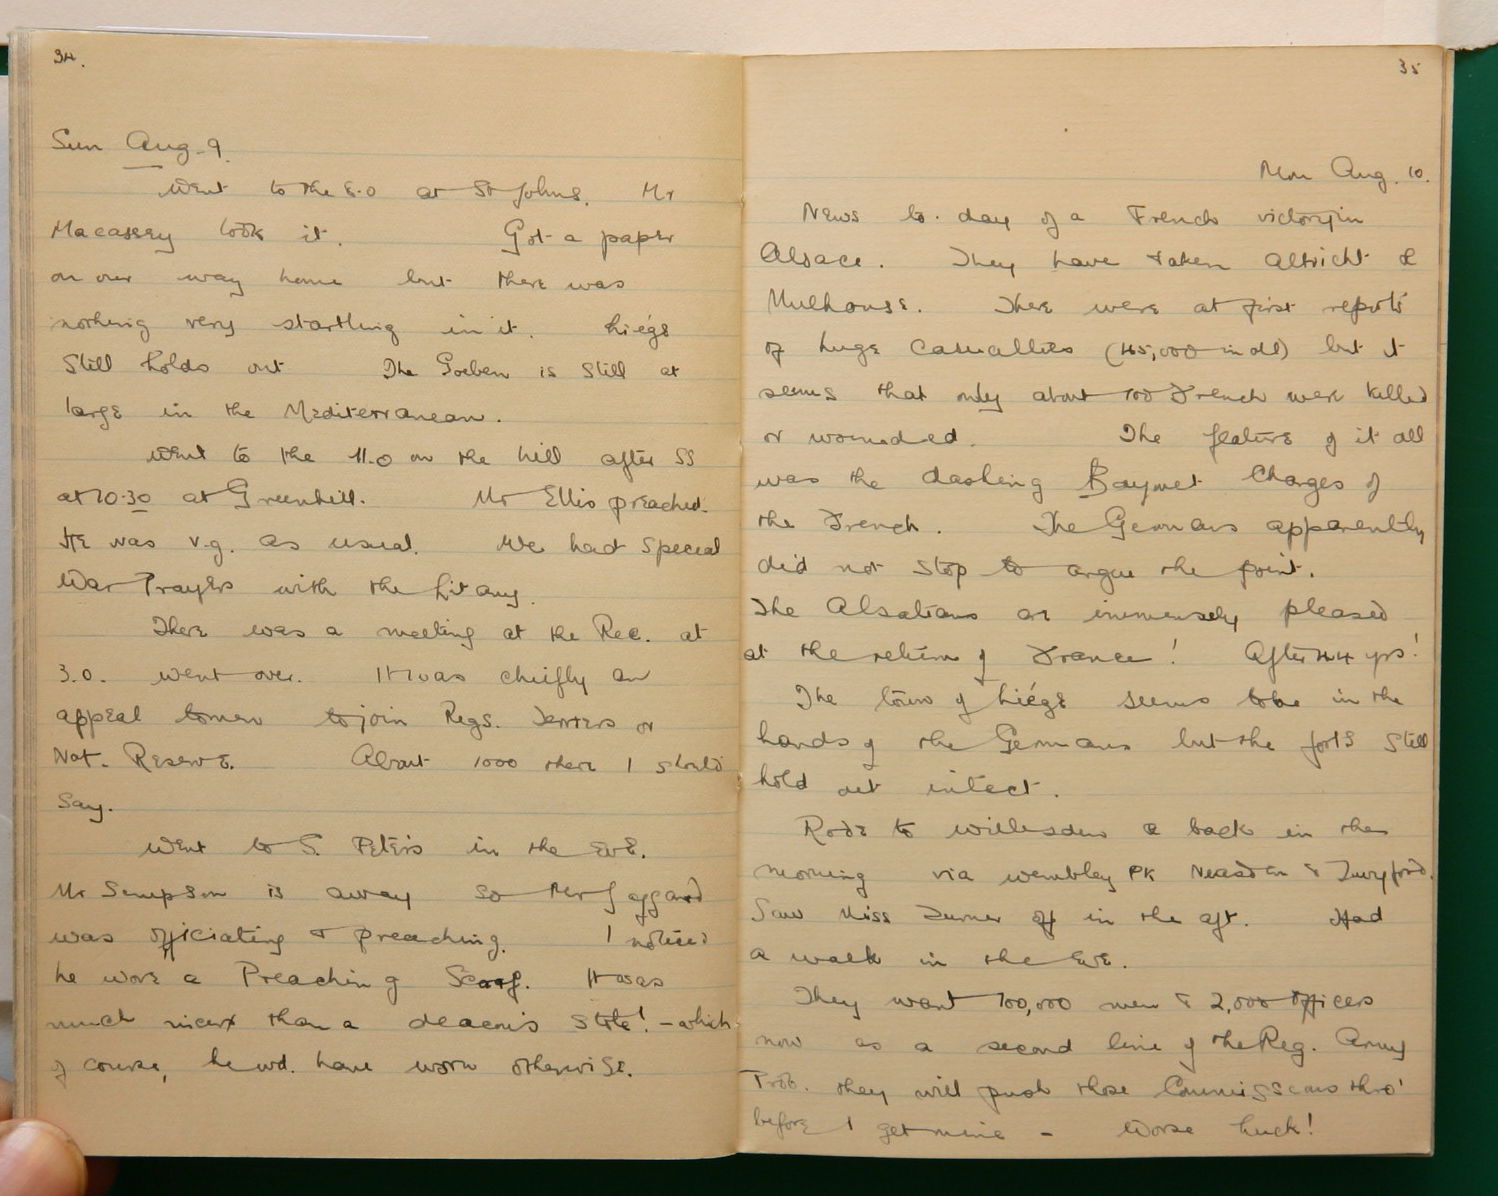 34.
Sun Aug. 9.
Went to the 8.0 at St Johns. Mr
Macassey took it. Got a paper
on our way home but there was
nothing very startling in it. Liége
Still holds out The Goeben is still at
large in the Mediterranean.
Went to the 11.0 on the hill after SS
at 10.30 at Greenhill. Mr Ellis preached.
He was v.g. as usual. We had special
War Prayers with the Litany.
There was a meeting at the Rec. at
3.0. went over. It was chiefly an
appeal to men to join Regs. Terriers or
Nat. Reserve. About 1000 there I should
Say.
Went to S. Peter's in the Eve.
Mr Simpson is away so Mr Jaggard
was officiating & preaching. I noticed
he wore a Preaching Scarf. It was
much nicer than a deacon's stole! - which
of course, he wd. have worn otherwise.
35
Mon Aug. 10.
News to-day of a French victory in
Alsace. They have taken Altricht &
Mulhouse. There were at first reports
of huge casualties (45,000 in all) but it
seems that only about 100 French were killed
or wounded. The feature of it all
was the dashing Bayonet Charges of
the French. The Germans apparently
did not stop to argue the point.
The Alsatians are immensely pleased
at the return of France! After 44 yrs!
The town of Liége seems to be in the
hands of the Germans but the forts still
hold out intact.
Rode to Willesden & back in the
morning via Wembley Pk Neasden & Twyford.
Saw Miss Turner off in the aft. Had
a walk in the Eve.
They want 100,000 men & 2,000 officers
now as a second line of the Reg. Army
Prob. they will push those Commissions thro'
before I get mine - Worse Luck!